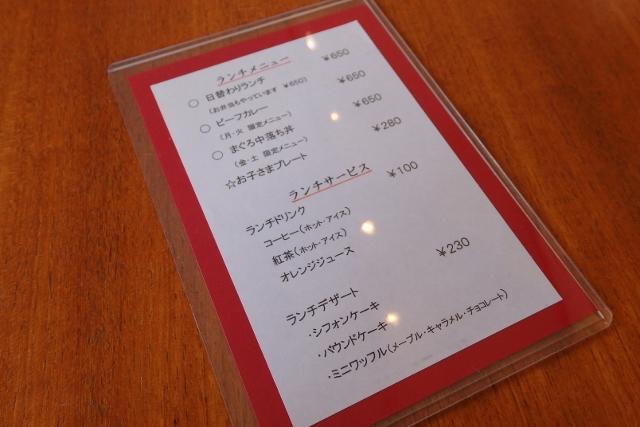 ランチメニュー
○ 日替わりランチ ￥650
(お弁当もやっています ￥650)
○ ビーフカレー ￥650
(月・火 限定メニュー)
○ まぐろ中落ち丼 ￥650
(金・土 限定メニュー)
☆お子さまプレート ￥280
ランチサービス
ランチドリンク ￥100
コーヒー(ホット・アイス)
紅茶(ホット・アイス)
オレンジジュース
ランチデザート ￥230
・シフォンケーキ
・パウンドケーキ
・ミニワッフル(メープル・キャラメル・チョコレート)